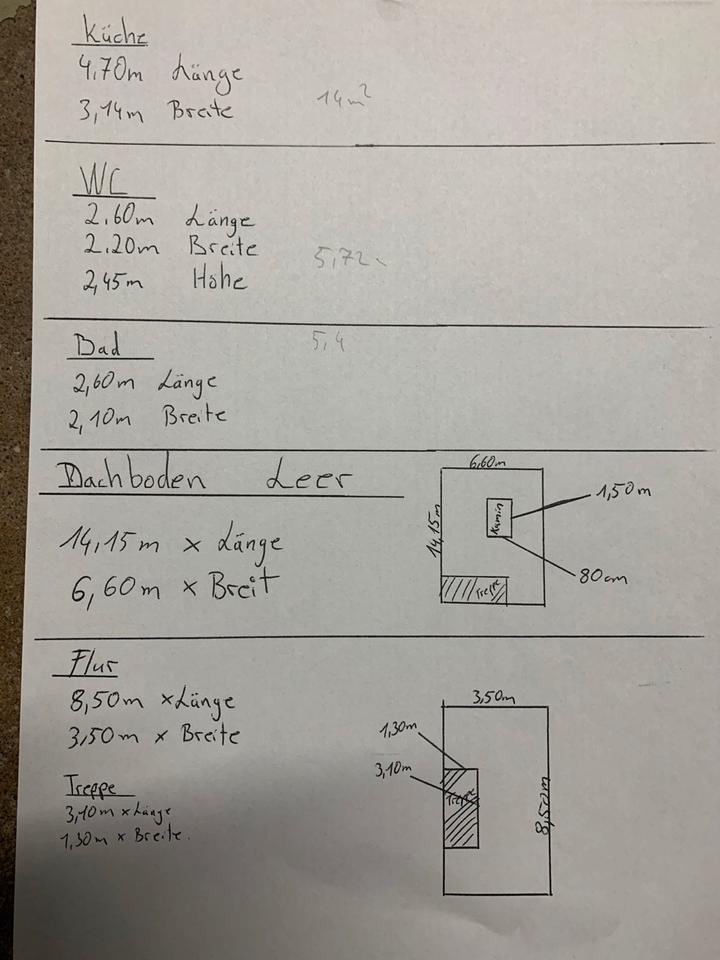 Küche
4,70m Länge
3,14m Breite
14m²
WC
2.60m Länge
2.20m Breite
2,45m Höhe
5,72
Bad
5,4
2,60m Länge
2,10m Breite
Dachboden Leer
14,15m x Länge
6,60m x Breit
6,60m
14,15m
Kamin
1,50m
80cm
Treppe
Flur
8,50m x Länge
3,50m x Breite
Treppe
3,10m x Länge
1,30m x Breite.
3,50m
1,30m
3,10m
Treppe
8,50m